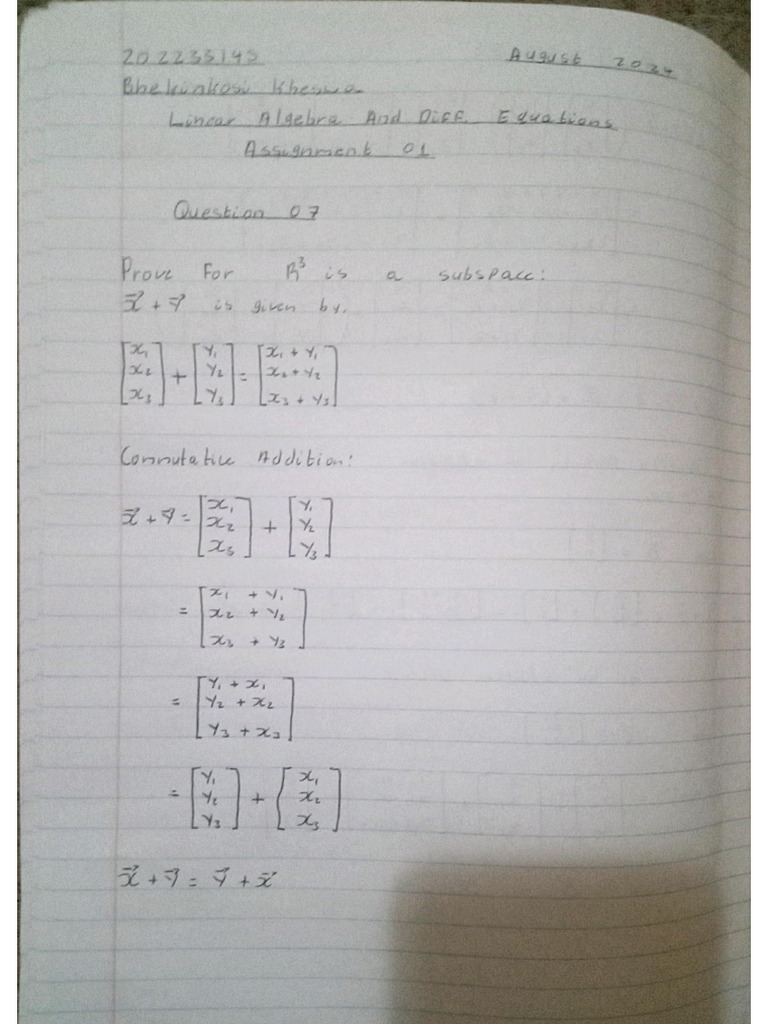 202233145 August 2024
Bhekinkosi Kheswa
Linear Algebra And Diff. Equations
Assignment 01
Question 07
Prove For R³ is a subspace:
x⃗ + y⃗ is given by.
[x₁ x₂ x₃] + [y₁ y₂ y₃] = [x₁ + y₁ x₂ + y₂ x₃ + y₃]
Commutative Addition:
x⃗ + y⃗ = [x₁ x₂ x₃] + [y₁ y₂ y₃]
= [x₁ + y₁ x₂ + y₂ x₃ + y₃]
= [y₁ + x₁ y₂ + x₂ y₃ + x₃]
= [y₁ y₂ y₃] + [x₁ x₂ x₃]
x⃗ + y⃗ = y⃗ + x⃗